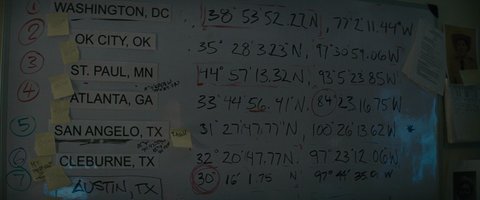 1 WASHINGTON, DC 38° 53'52.27"N, 77°2'11.44"W
2 OK CITY, OK 35° 28'3.23"N, 97°30'59.06"W
3 ST. PAUL, MN 44° 57'13.32"N, 93°5'23.85"W
4 ATLANTA, GA 33°44'56.41"N, 84°23'16.75"W
5 SAN ANGELO, TX 31°27'47.77"N, 100°26'13.62"W
6 CLEBURNE, TX 32°20'47.77"N, 97°23'12.06"W
7 AUSTIN, TX 30° 16' 1.75 N 97°44'35.0 W